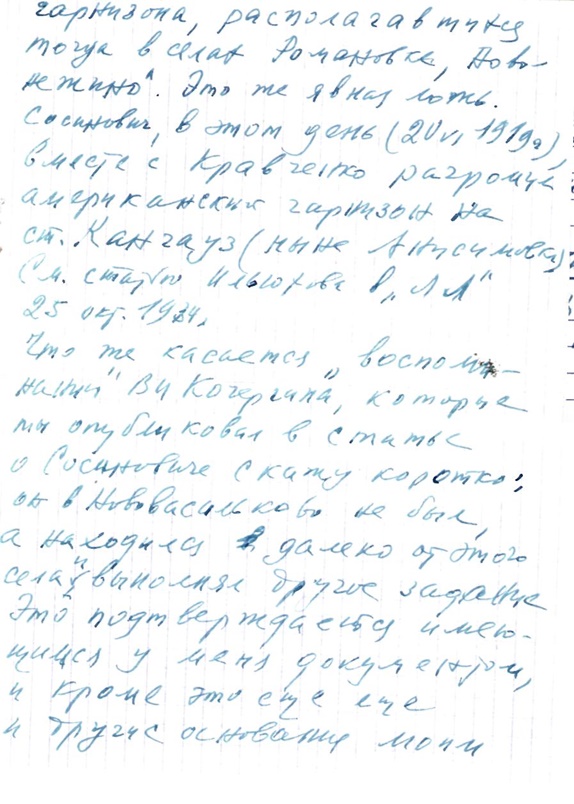 гарнизона, располагавшихся
тогда в селах Романовка, Ново-
нежино". Это же явная ложь.
Сосинович, в этот день (20 VI 1919г),
вместе с Кравченко разгромил
американский гарнизон на
ст. Кангауз (ныне Анисимовка)
См. статью Ильюхова в „
25 окт. 1934.
Что же касается „воспоми-
наний" ВИ Кочергина, которые
ты опубликовал в статье
о Сосиновиче скажу коротко:
он в Нововасильково не был,
а находился далеко от этого
села и выполнял другое задание
Это подтверждается имею-
щимся у меня документом,
и кроме это еще еще
и другие основания моим